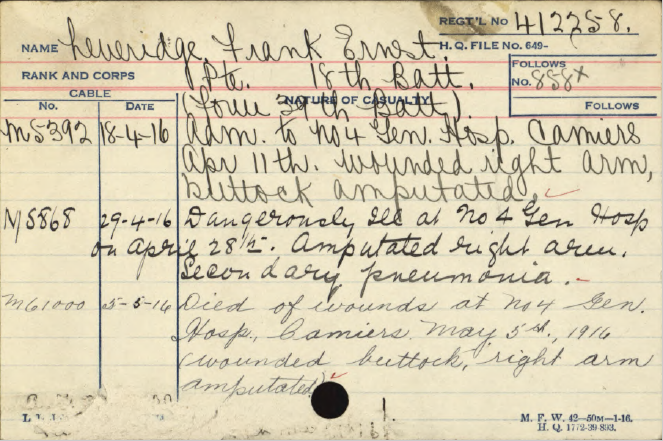 REGT'L No 412258.
NAME Leveridge, Frank Ernest.
H. Q. FILE No. 649-
RANK AND CORPS Pte. 18th Batt.
FOLLOWS
No. 858x
CABLE
(Form 39th Batt).
NATURE OF CASUALTY
No. DATE
FOLLOWS
M5392 18-4-16 Adm. to No 4 Gen. Hosp. Camiers
Apr 11th. wounded right arm,
buttock amputated.
M5868 29-4-16 Dangerously Ill at No 4 Gen Hosp
on April 28th. Amputated right arm.
Secondary pneumonia.
M61000 5-5-16 Died of wounds at No 4 Gen.
Hosp., Camiers May 5th, 1916
(wounded buttock, right arm
amputated)
1.
M. F. W. 42—50M—1-16.
H. Q. 1772-39-893.